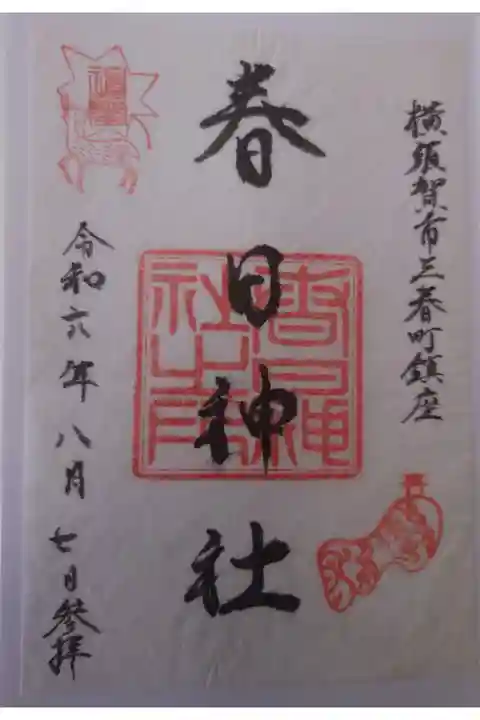 横須賀市三春町鎮座
春日神社
令和六年八月七日参拝